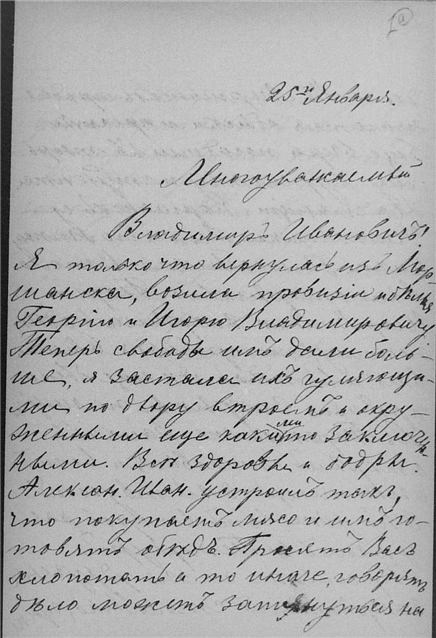 25го Января.
Многоуважаемый
Владимиръ Ивановичъ!
Я только что вернулась изъ Мор-
шанска, возила провизіи и бѣлья
Георгію и Игорю Владимировичу
Теперь свободы имъ дали боль-
ше, я застала ихъ гуляющи-
ми по двору втроемъ и окру-
женными еще какими то заключен-
ными. Всѣ здоровы и бодры.
Алексан. Иван. устроилъ такъ,
что покупаетъ мясо и имъ го-
товятъ обѣдъ. Просятъ Васъ
хлопотать а то иначе, говорятъ
дѣло можетъ затянуться на